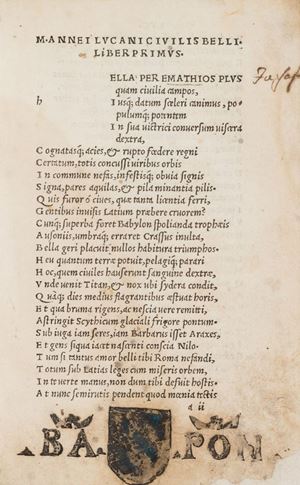 M. ANNEI LVCANI CIVILIS BELLI.
LIBER PRIMVS.
ELLA PER EMATHIOS PLVS
quam ciuilia campos,
h I usq; datum sceleri canimus, po-
pulumq; potentem
I n sua uictrici conuersum uiscera
dextra,
C ognatasq; acies, & rupto fœdere regni
C ertatum, totis concussi uiribus orbis
I n commune nefas, infestisq; obuia signis
S igna, pares aquilas, & pila minantia pilis.
Q uis furor ô ciues, quæ tanta licentia ferri,
G entibus inuisis Latium præbere cruorem?
C unq; superba foret Babylon spolianda trophæis
A usoniis, umbraq; erraret Crassus inulta,
B ella geri placuit nullos habitura triumphos.
H eu quantum terræ potuit, pelagiq; parari
H oc, quem ciuiles hauserunt sanguine dextræ,
V nde uenit Titan, & nox ubi sydera condit,
Q uàq; dies medius flagrantibus æstuat horis,
E t qua bruma rigens, ac nescia uere remitti,
A stringit Scythicum glaciali frigore pontum.
S ub iuga iam seres, iam Barbarus isset Araxes,
E t gens siqua iacet nascenti conscia Nilo.
T um si tantus amor belli tibi Roma nefandi,
T otum sub Latias leges cum miseris orbem,
I n te uerte manus, non dum tibi defuit hostis.
A t nunc semirutis pendent quod mœnia tectis
a ii
BA PON